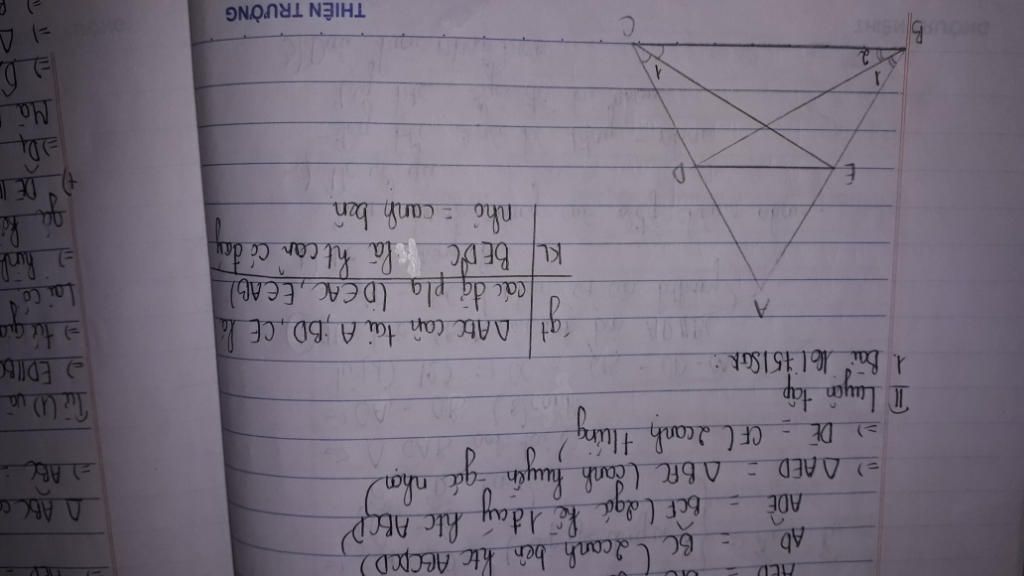 AD = BC (2 cạnh bên htc ABCD)
ADE = BCF (2 góc kề 1 đáy htc ABCD)
=> △ AED = △ BFC (cạnh huyền - góc nhọn)
=> DE = CF (2 cạnh t/ứng)
II Luyện tập
1. Bài 16 / 75 / SGK:
gt △ ABC cân tại A, BD, CE là
các đg p/g (D ∈ AC, E ∈ AB)
KL BEDC là ht cân có đáy
nhỏ = cạnh bên
A
E D
B 1 2 1 C
THIÊN TRƯỜNG
△ ABC
=> ABC =
Từ (1) và
=> ED//BC
=> tứ giác
Lại có
=> hình
DE //
=> D1
Mà